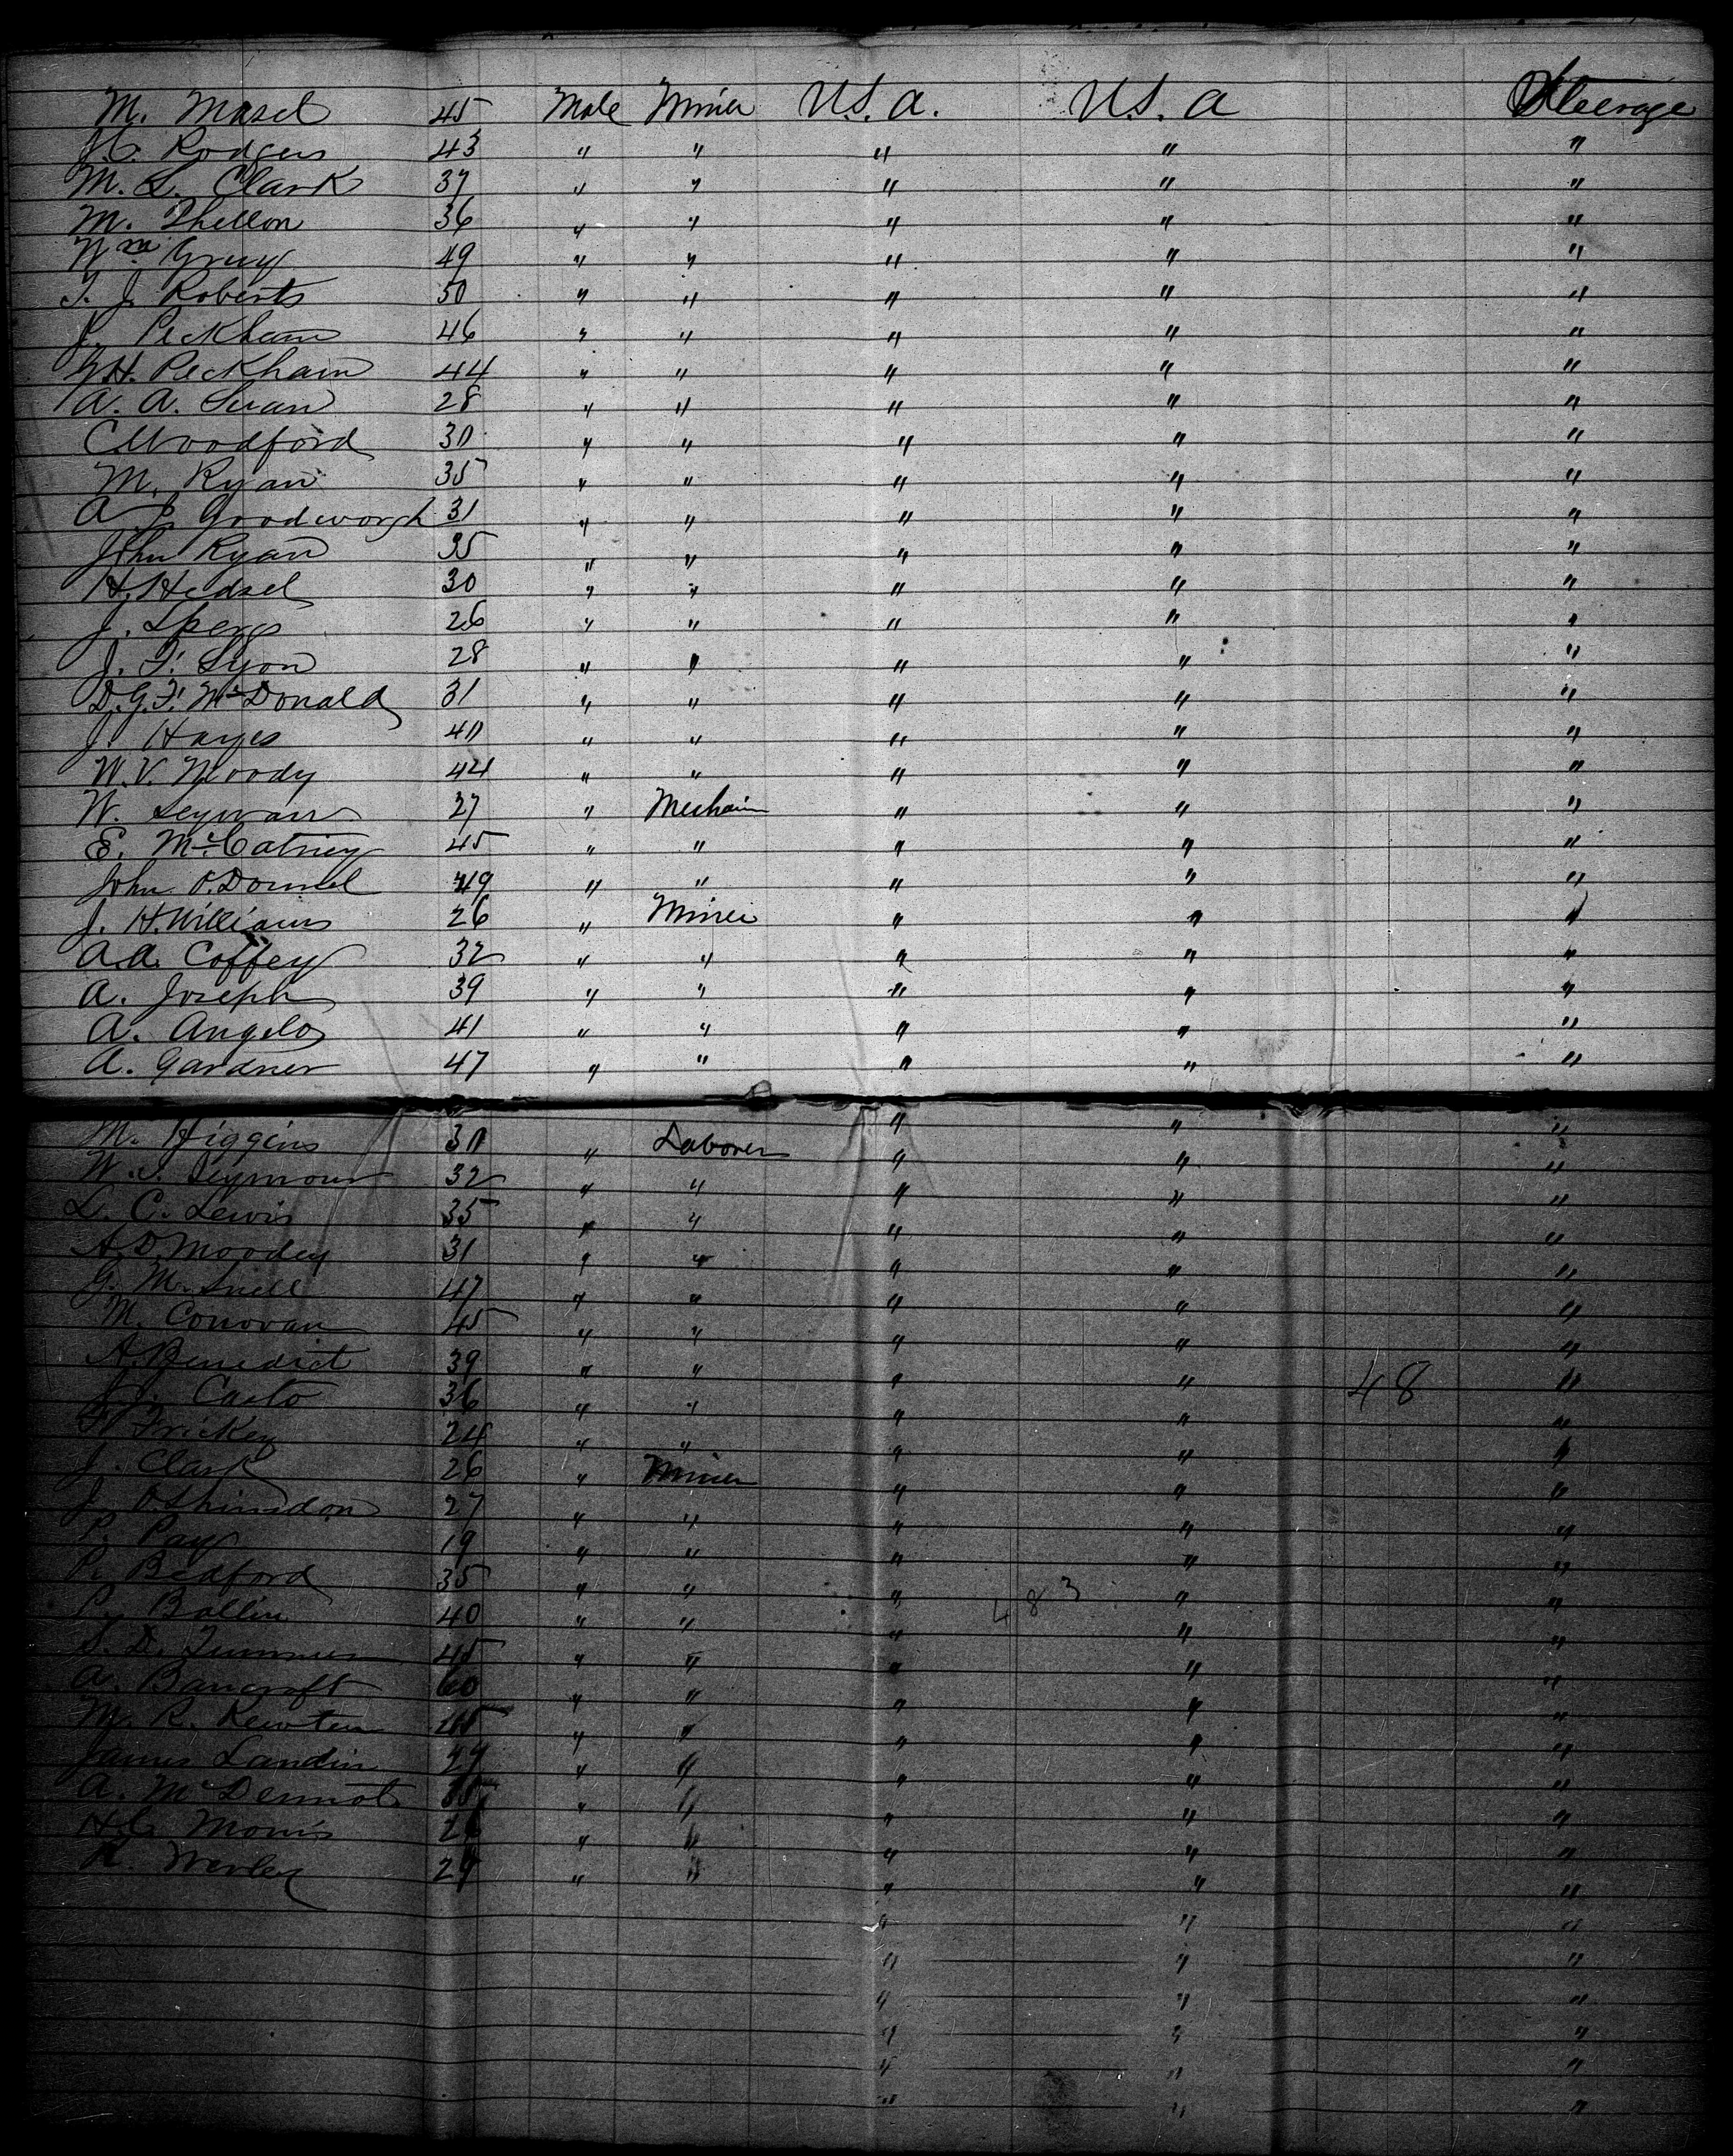 M. Masel 45 Male Miner U.S.a. U.S.a Steerage
Rodgers 43 " " " " "
M. L. Clark 37 " " " " "
M. Phellon 36 " " " " "
Wm Gruy 49 " " " " "
T. J. Roberts 50 " " " " "
J. Peckham 46 " " " " "
H. Peckham 44 " " " " "
A. A. Swan 28 " " " " "
C Woodford 30 " " " " "
M. Ryan 35 " " " " "
A Goodworgh 31 " " " " "
John Ryan 35 " " " " "
H. Hedsel 30 " " " " "
J. 26 " " " " "
J. F. Lyon 28 " " " " "
D.G.F. McDonald 31 " " " " "
J. Hayes 40 " " " " "
W.V. Moody 44 " " " " "
W. 27 " " " "
E. McCatney 45 " " " " "
John O.Donnel 49 " " " " "
J. H. Williams 26 " Miner " " "
A.A. Coffey 32 " " " " "
A. Joseph 39 " " " " "
A. Angelo 41 " " " " "
A. Gardner 47 " " " " "
" " "
M. Higgins 30 " Laborer " " "
W. Seymour 32 " " " " "
L. C. Lewis 35 " " " " "
A.D. Moodey 31 " " " " "
G. M. Snell 47 " " " " "
M. Conovan 45 " " " " "
A. Benedict 39 " " " " 48 "
Casto 36 " " " " "
F Frickey 24 " " " " "
J. Clark 26 " Miner " " "
J. 27 " " " " "
P. Pay 19 " " " " "
P. Bedford 35 " " " 483 " "
P. Ballin 40 " " " " "
S. D. 45 " " " " "
A. Bancroft 60 " " " " "
M. R. 45 " " " " "
James Landin " " " " "
A. McDermot 35 " " " " "
H.C. Morris 26 " " " " "
Werley " " " " "
" " "
" " "
" " "
" " "
" " "
" " "